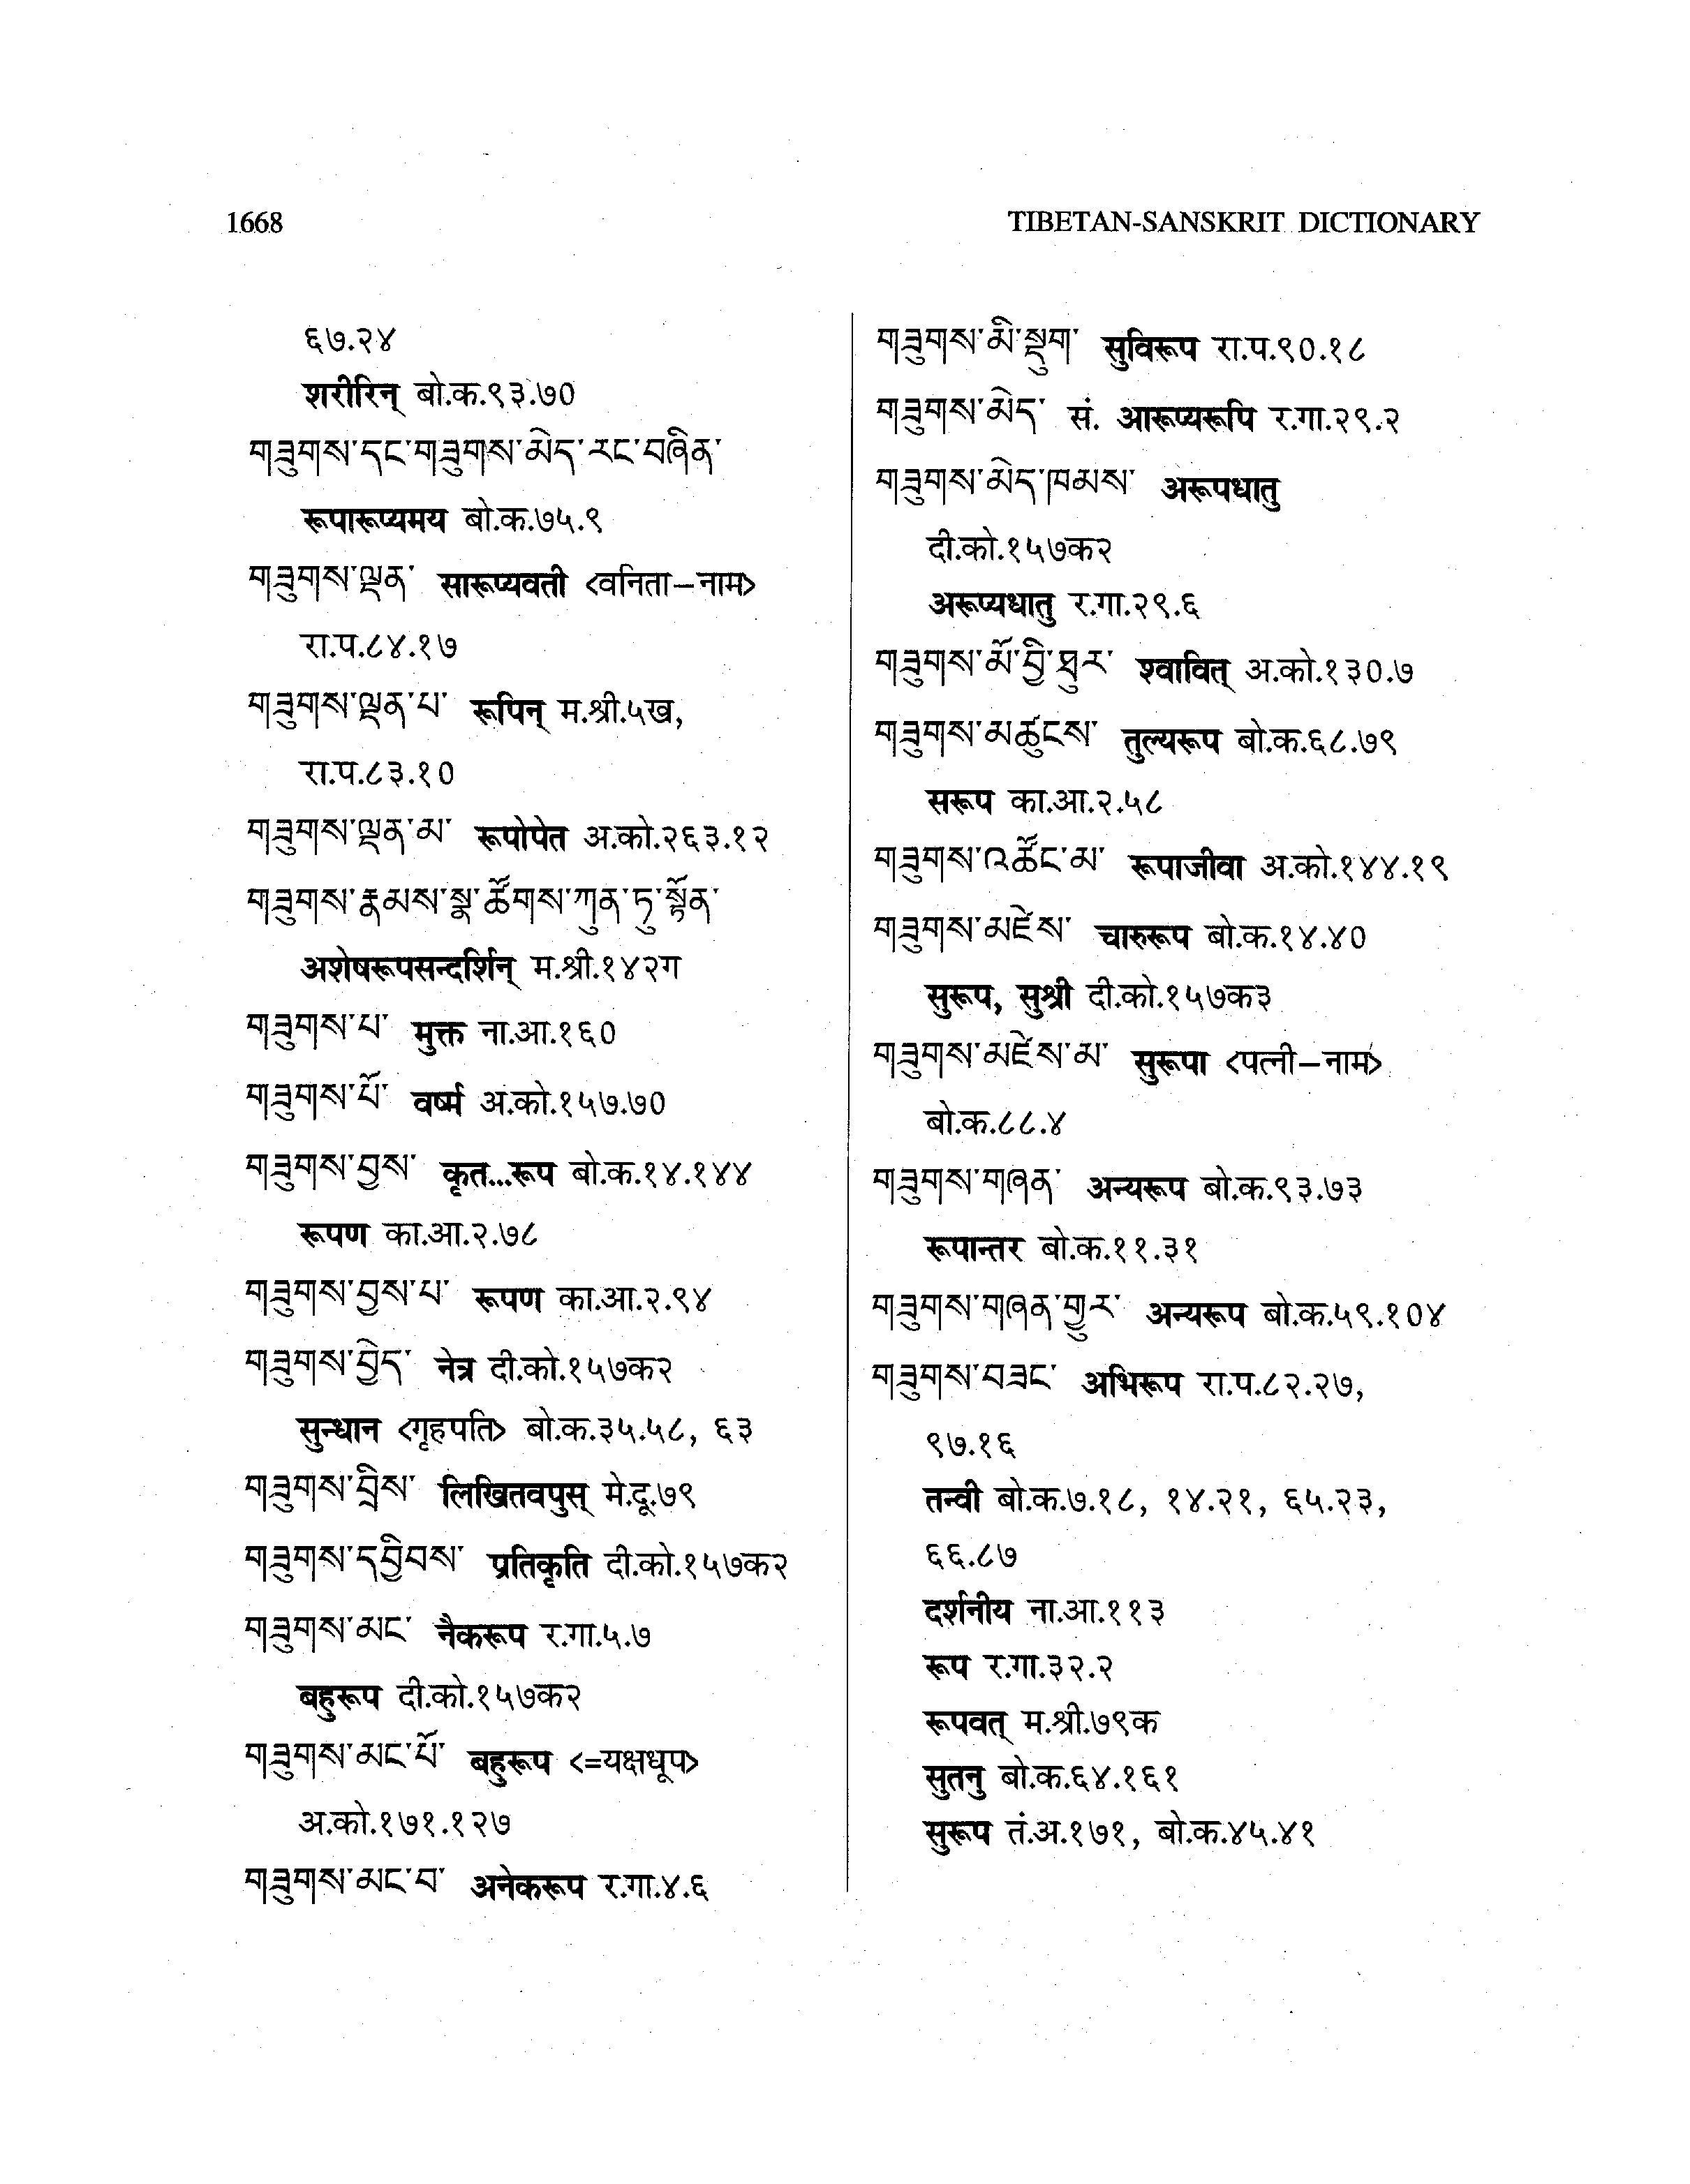 1668
TIBETAN-SANSKRIT DICTIONARY
६७.२४
शरीरिन् बो.क.९३.७०
གཟུགས་དང་གཟུགས་མེད་རང་བཞིན་
रूपारूप्यमय बो.क.७५.९
གཟུགས་ལྡན་ सारूप्यवती <वनिता–नाम>
रा.प.८४.१७
གཟུགས་ལྡན་པ་ रूपिन् म.श्री.५ख,
रा.प.८३.१०
གཟུགས་ལྡན་མ་ रूपोपेत अ.को.२६३.१२
གཟུགས་རྣམས་སྣ་ཚོགས་ཀུན་ཏུ་སྟོན་
अशेषरूपसन्दर्शिन् म.श्री.१४२ग
གཟུགས་པ་ मुक्त ना.आ.१६०
གཟུགས་པོ་ वर्ष्म अ.को.१५७.७०
གཟུགས་བྱས་ कृत...रूप बो.क.१४.१४४
रूपण का.आ.२.७८
གཟུགས་བྱས་པ་ रूपण का.आ.२.९४
གཟུགས་བྱེད་ नेत्र दी.को.१५७क२
सुन्धान <गृहपति> बो.क.३५.५८, ६३
གཟུགས་བྲིས་ लिखितवपुस् मे.दू.७९
གཟུགས་དབྱིབས་ प्रतिकृति दी.को.१५७क२
གཟུགས་མང་ नैकरूप र.गा.५.७
बहुरूप दी.को.१५७क२
གཟུགས་མང་པོ་ बहुरूप <=यक्षधूप>
अ.को.१७१.१२७
གཟུགས་མང་བ་ अनेकरूप र.गा.४.६
གཟུགས་མི་སྡུག་ सुविरूप रा.प.९०.१८
གཟུགས་མེད་ सं. आरूप्यरूपि र.गा.२९.२
གཟུགས་མེད་ཁམས་ अरूपधातु
दी.को.१५७क२
अरूप्यधातु र.गा.२९.६
གཟུགས་མོ་བྱི་ཐུར་ श्वावित् अ.को.१३०.७
གཟུགས་མཚུངས་ तुल्यरूप बो.क.६८.७९
सरूप का.आ.२.५८
གཟུགས་འཚོང་མ་ रूपाजीवा अ.को.१४४.१९
གཟུགས་མཛེས་ चारुरूप बो.क.१४.४०
सुरूप, सुश्री दी.को.१५७क३
གཟུགས་མཛེས་མ་ सुरूपा <पत्नी–नाम>
बो.क.८८.४
གཟུགས་གཞན་ अन्यरूप बो.क.९३.७३
रूपान्तर बो.क.११.३१
གཟུགས་གཞན་གྱུར་ अन्यरूप बो.क.५९.१०४
གཟུགས་བཟང་ अभिरूप रा.प.८२.२७,
९७.१६
तन्वी बो.क.७.१८, १४.२१, ६५.२३,
६६.८७
दर्शनीय ना.आ.११३
रूप र.गा.३२.२
रूपवत् म.श्री.७९क
सुतनु बो.क.६४.१६१
सुरूप तं.अ.१७१, बो.क.४५.४१